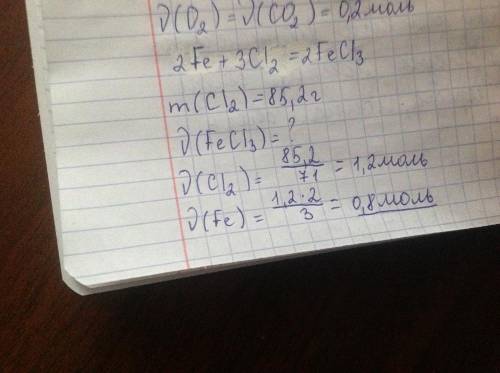 ν(O₂) = ν(CO₂) = 0,2 моль
2Fe + 3Cl₂ = 2FeCl₃
m(Cl₂) = 85,2 г
ν(FeCl₃) = ?
ν(Cl₂) = 85,2/71 = 1,2 моль
ν(Fe) = 1,2·2/3 = 0,8 моль